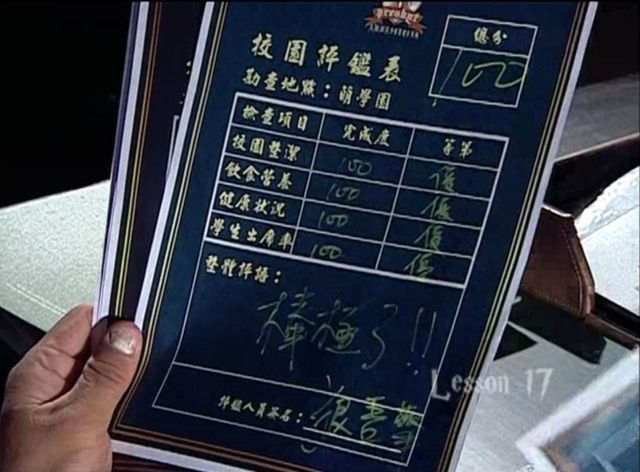 校園評鑑表
總分
100
勘查地點：萌學園
檢查項目 完成度 等第
校園整潔 100 優
飲食營養 100 優
健康狀況 100 優
學生出席率 100 優
整體評語：
棒極了!!
評鑑人員簽名：
Lesson 17